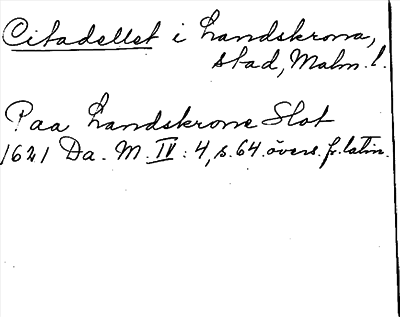 Citadellet i Landskrona,
stad, Malm. l.
Paa Landskrone Slot
1621 Da. M. IV: 4, s. 64. övers. fr. latin.